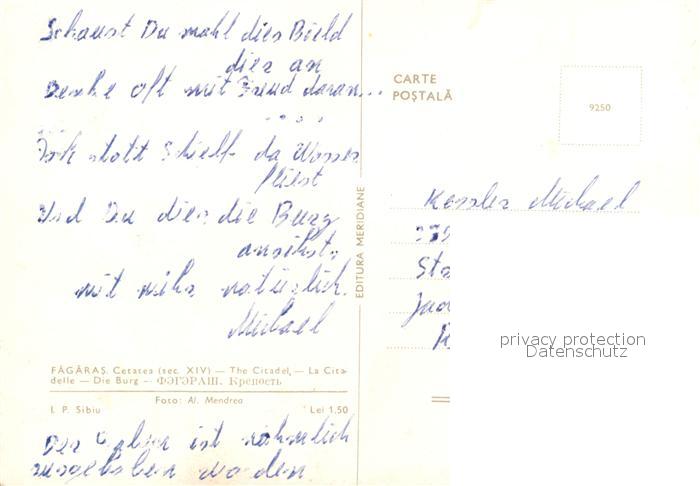 Schaust Du mahl dies Bield
dier an
Denke oft mit Freud daran...
statt Schielf da Wasser
fliest
Und Du dier die Burg
ansihst,
mit mihr natürlich.
Michael
FĂGĂRAȘ. Cetatea (sec. XIV) — The Citadel, — La Cita-
delle — Die Burg — ФЭГЭРАШ. Крепость
Foto: Al. Mendrea
I. P. Sibiu Lei 1,50
Der ist nähmlich
worden
EDITURA MERIDIANE
CARTE
POȘTALĂ
9250
Kessler Michael
privacy protection
Datenschutz